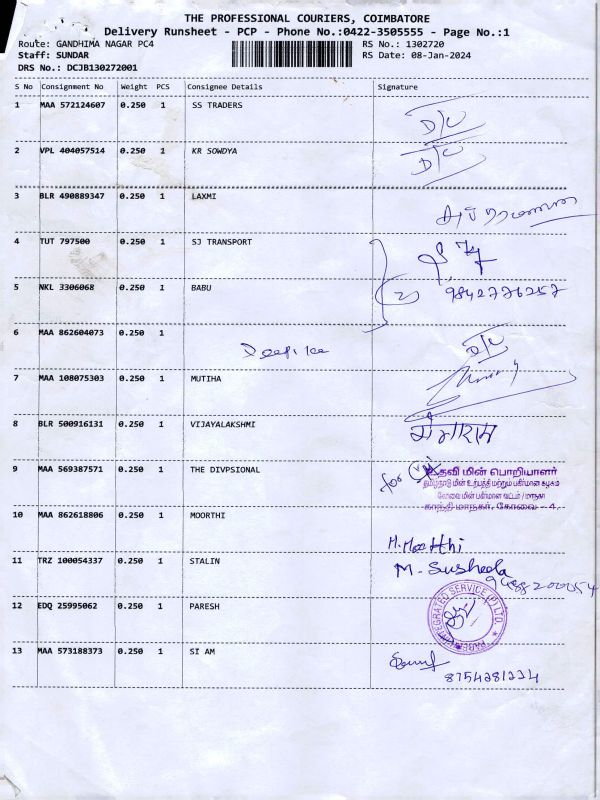 THE PROFESSIONAL COURIERS, COIMBATORE
Delivery Runsheet - PCP - Phone No.:0422-3505555 - Page No.:1
Route: GANDHIMA NAGAR PC4 RS No.: 1302720
Staff: SUNDAR RS Date: 08-Jan-2024
DRS No.: DCJB130272001
S No Consignment No Weight PCS Consignee Details Signature
1 MAA 572124607 0.250 1 SS TRADERS D/C
2 VPL 404057514 0.250 1 KR SOWDYA D/C
3 BLR 490889347 0.250 1 LAXMI
4 TUT 797500 0.250 1 SJ TRANSPORT
5 NKL 3306068 0.250 1 BABU 2 9842776257
6 MAA 862604073 0.250 1 Deepika D/C
7 MAA 108075303 0.250 1 MUTIHA
8 BLR 500916131 0.250 1 VIJAYALAKSHMI
9 MAA 569387571 0.250 1 THE DIVPSIONAL for உதவி மின் பொறியாளர்
தமிழ்நாடு மின் உற்பத்தி மற்றும் பகிர்மான கழகம்
கோவை மின் பகிர்மான வட்டம் / மாநகர்
காந்தி மாநகர், கோவை - 4.
10 MAA 862618806 0.250 1 MOORTHI M. Moorthi
11 TRZ 100054337 0.250 1 STALIN M. Susheela
12 EDQ 25995062 0.250 1 PARESH INTEGRATED SERVICE (P) LTD.
13 MAA 573188373 0.250 1 SI AM
8754281234